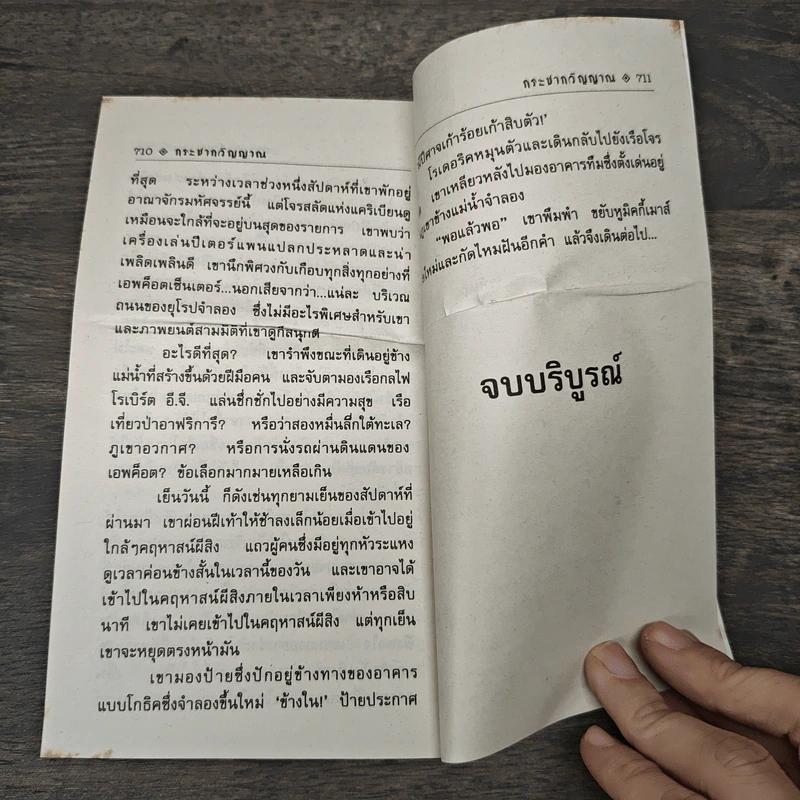 710 ◈ กระชากวิญญาณ
ที่สุด ระหว่างเวลาช่วงหนึ่งสัปดาห์ที่เขาพักอยู่
อาณาจักรมหัศจรรย์นี้ แต่โจรสลัดแห่งแคริเบียนดู
เหมือนจะใกล้ที่จะอยู่บนสุดของรายการ เขาพบว่า
เครื่องเล่นปีเตอร์แพนแปลกประหลาดและน่า
เพลิดเพลินดี เขานึกพิศวงกับเกือบทุกสิ่งทุกอย่างที่
เอพค็อตเซ็นเตอร์...นอกเสียจากว่า...แน่ละ บริเวณ
ถนนของยุโรปจำลอง ซึ่งไม่มีอะไรพิเศษสำหรับเขา
และภาพยนต์สามมิติที่เขาดูก็สนุกดี
อะไรดีที่สุด? เขารำพึงขณะที่เดินอยู่ข้าง
แม่น้ำที่สร้างขึ้นด้วยฝีมือคน และจับตามองเรือกลไฟ
โรเบิร์ต อี.จี. แล่นชึ่กชั่กไปอย่างมีความสุข เรือ
เที่ยวป่าอาฟริการึ? หรือว่าสองหมื่นลี้กใต้ทะเล?
ภูเขาอวกาศ? หรือการนั่งรถผ่านดินแดนของ
เอพค็อต? ข้อเลือกมากมายเหลือเกิน
เย็นวันนี้ ก็ดังเช่นทุกยามเย็นของสัปดาห์ที่
ผ่านมา เขาผ่อนฝีเท้าให้ช้าลงเล็กน้อยเมื่อเข้าไปอยู่
ใกล้ๆคฤหาสน์ผีสิง แถวผู้คนซึ่งมีอยู่ทุกหัวระแหง
ดูเวลาค่อนข้างสั้นในเวลานี้ของวัน และเขาอาจได้
เข้าไปในคฤหาสน์ผีสิงภายในเวลาเพียงห้าหรือสิบ
นาที เขาไม่เคยเข้าไปในคฤหาสน์ผีสิง แต่ทุกเย็น
เขาจะหยุดตรงหน้ามัน
เขามองป้ายซึ่งปักอยู่ข้างทางของอาคาร
แบบโกธิคซึ่งจำลองขึ้นใหม่ 'ข้างใน!' ป้ายประกาศ
กระชากวิญญาณ ◈ 711
ปีศาจเก้าร้อยเก้าสิบตัว!'
โรเดอริคหมุนตัวและเดินกลับไปยังเรือโจร
เขาเหลียวหลังไปมองอาคารทึมซึ่งตั้งเด่นอยู่
เขาข้างแม่น้ำจำลอง
"พอแล้วพอ" เขาพึมพำ ขยับหูมิคกี้เมาส์
ใหม่และกัดไหมฝันอีกคำ แล้วจึงเดินต่อไป...
จบบริบูรณ์